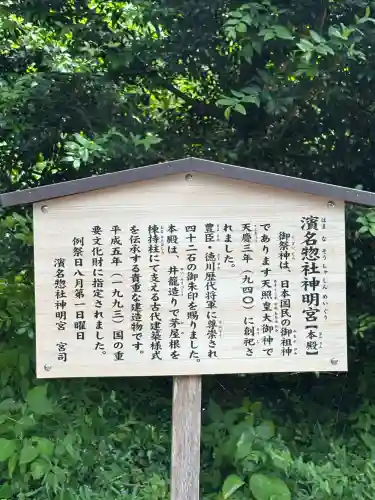 濱名惣社神明宮【本殿】
はまなそうしゃしんめいぐう
御祭神は、日本国民の御祖神
であります天照皇大御神で
天慶三年（九四〇）に創祀さ
れました。
豊臣・徳川歴代将軍に尊崇され
四十二石の御朱印を賜りました。
本殿は、井籠造りで茅屋根を
棟持柱にて支える古代建築様式
を伝承する貴重な建造物です。
平成五年（一九九三）国の重
要文化財に指定されました。
例祭日八月第一日曜日
濱名惣社神明宮　宮司